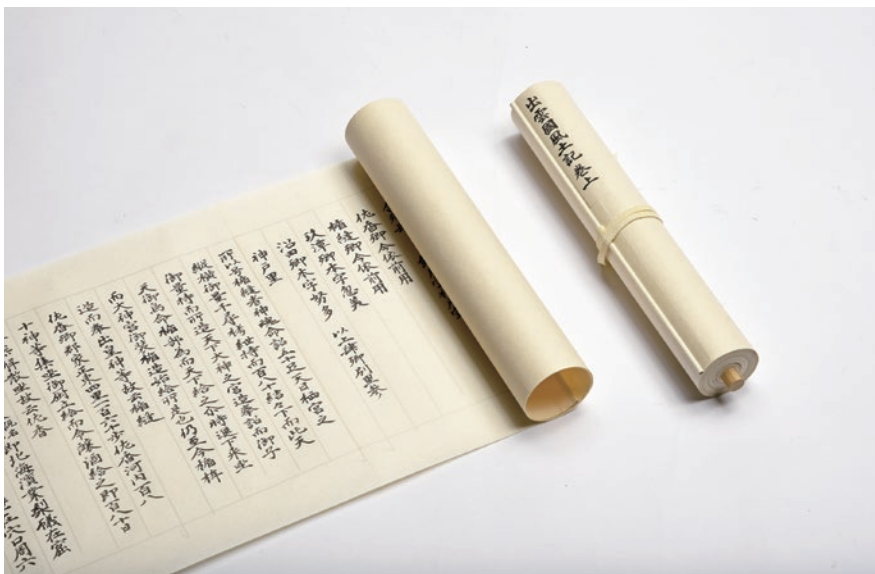 出雲國風土記巻上
佐香郷今依前用
楯縫郷今依前用
玖潭郷本字忽美
沼田郷本字努多 以上肆郷別里参
神戸里
所以号楯縫者神魂命詔五十足天日栖宮之
縦横御量千尋栲紲持而百八十結之下而此天
御量持而所造天下大神之宮造奉詔而御子
天御鳥命楯部為而天下給之尓時退下来坐
而大神宮御装楯造始給所是也仍至今楯桙
造而奉出皇神等故云楯縫
佐香郷郡家正東四里一百六十歩佐香河内百八
十神等集坐御厨立給而令醸酒給之即百八十日
解散坐故云佐香
即北海濱業梨礒在窟